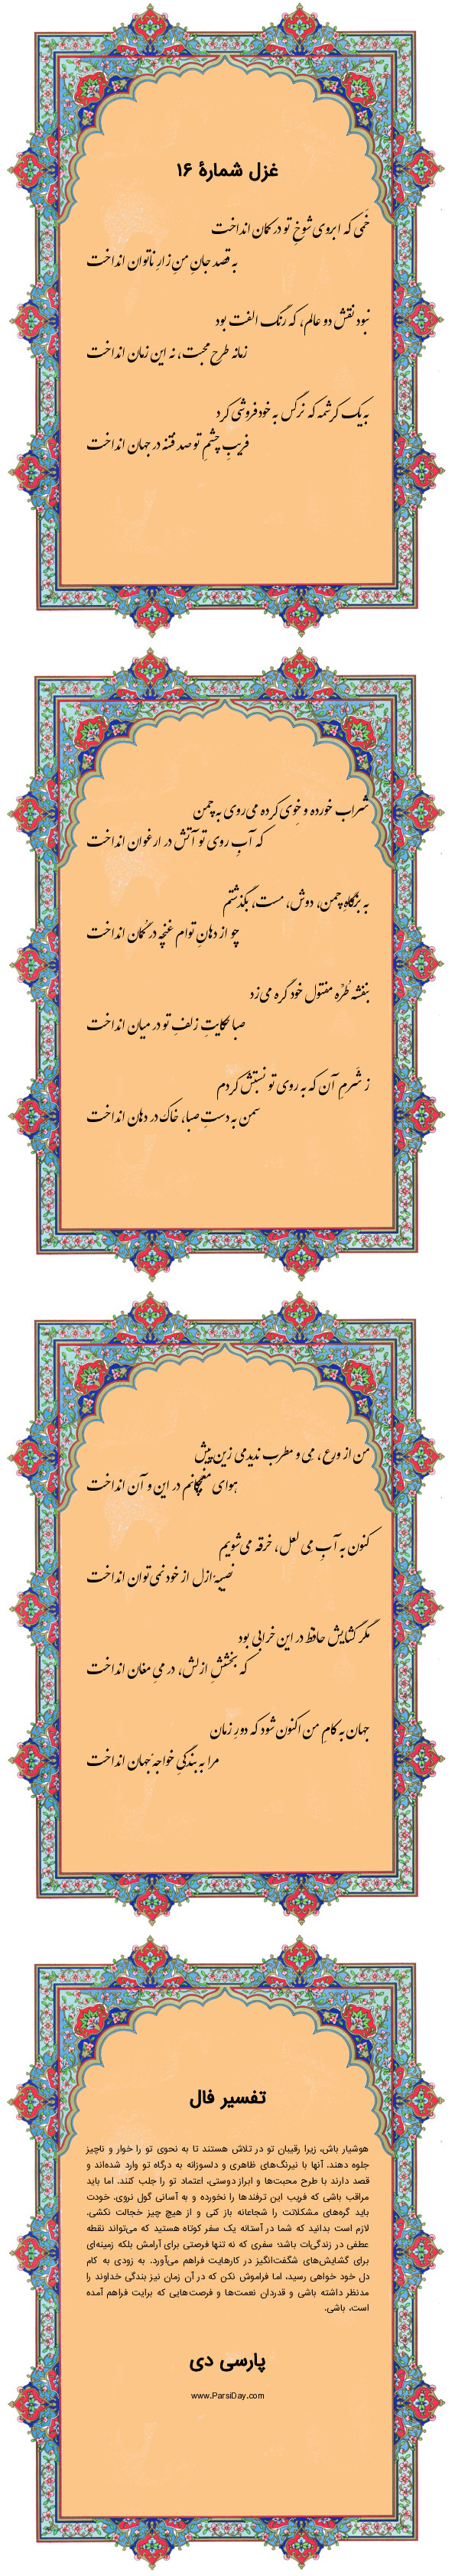 غزل شمارهٔ ۱۶
خَمی که ابروی شوخِ تو در کمان انداخت
به قصد جانِ منِ زارِ ناتوان انداخت
نبود نقش دو عالم، که رنگ الفت بود
زمانه طرح محبت، نه این زمان انداخت
به یک کرشمه که نرگس به خودفروشی کرد
فریبِ چشمِ تو صد فتنه در جهان انداخت
شراب خورده و خِوی کرده می‌روی به چمن
که آبِ روی تو آتش در ارغوان انداخت
به بزمگاهِ چمن، دوش، مست، بگذشتم
چو از دهانِ توام غنچه در گُمان انداخت
بنفشه طُرّه مفتول خود گره می‌زد
صبا حکایتِ زلفِ تو در میان انداخت
ز شَرمِ آن که به روی تو نسبتش کردم
سمن به دستِ صبا، خاک در دهان انداخت
من از ورع، مِی و مطرب ندیدمی زین پیش
هوای مغبچگانم در این و آن انداخت
کنون به آبِ مِی لعل، خرقه می‌شویم
نصیبهٔ ازل از خود نمی‌توان انداخت
مگر گشایش حافظ در این خرابی بود
که بخششِ ازلش، در میِ مغان انداخت
جهان به کامِ من اکنون شود که دورِ زمان
مرا به بندگیِ خواجهٔ جهان انداخت
تفسیر فال
هوشیار باش، زیرا رقیبان تو در تلاش هستند تا به نحوی تو را خوار و ناچیز
جلوه دهند. آنها با نیرنگ‌های ظاهری و دلسوزانه به درگاه تو وارد شده‌اند و
قصد دارند با طرح محبت‌ها و ابراز دوستی، اعتماد تو را جلب کنند. اما باید
مراقب باشی که فریب این ترفندها را نخورده و به آسانی گول نروی. خودت
باید گره‌های مشکلاتت را شجاعانه باز کنی و از هیچ چیز خجالت نکشی.
لازم است بدانید که شما در آستانه یک سفر کوتاه هستید که می‌تواند نقطه
عطفی در زندگی‌ات باشد؛ سفری که نه تنها فرصتی برای آرامش بلکه زمینه‌ای
برای گشایش‌های شگفت‌انگیز در کارهایت فراهم می‌آورد. به زودی به کام
دل خود خواهی رسید، اما فراموش نکن که در آن زمان نیز بندگی خداوند را
مدنظر داشته باشی و قدردان نعمت‌ها و فرصت‌هایی که برایت فراهم آمده
است، باشی.
پارسی دی
www.ParsiDay.com